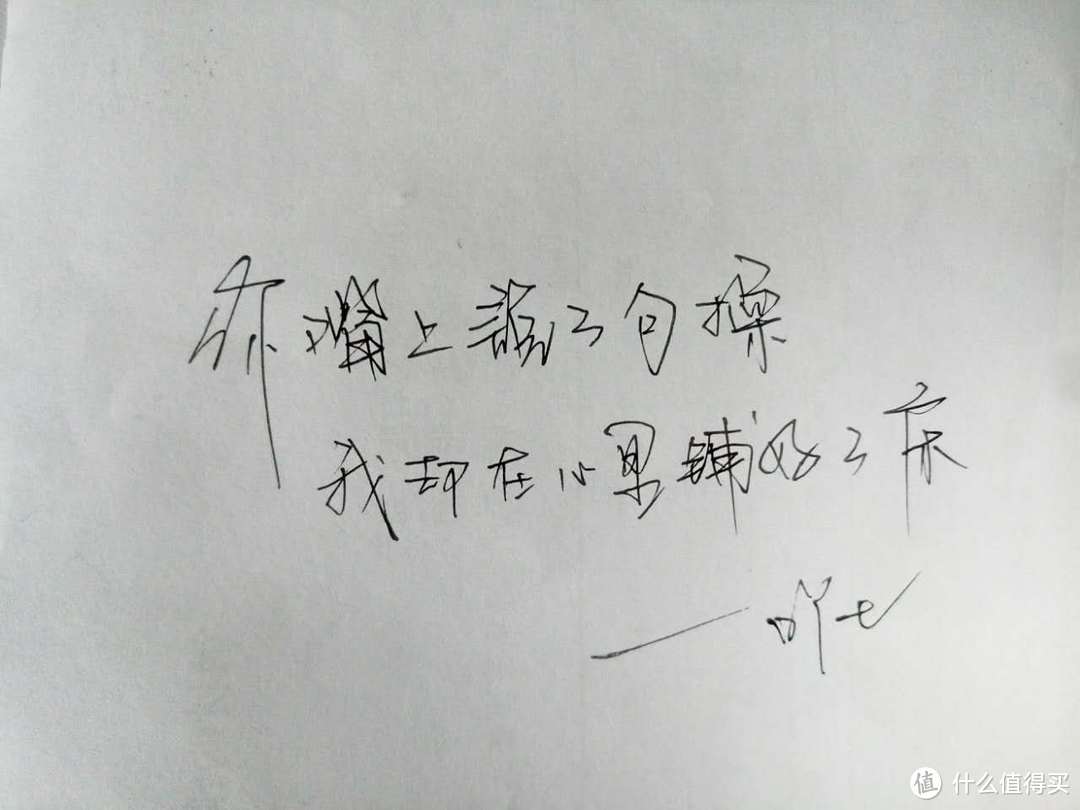 你嘴上说了句操
我却在心里铺好了床
——吖七
值 什么值得买